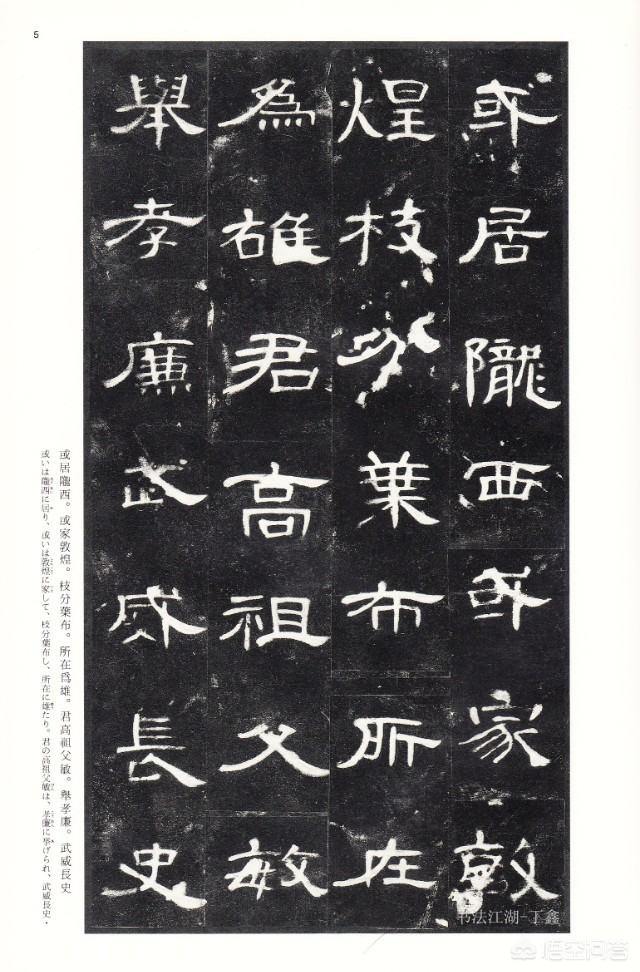 5
或居隴西或家敦
煌枝分葉布所在
為雄君高祖父敏
舉孝廉武威長史
或居隴西。或家敦煌。枝分葉布。所在爲雄。君高祖父敏。舉孝廉。武威長史
或いは隴西に居り、或いは敦煌に家して、枝分葉布し、所在に雄たり。君の高祖父敏は、孝廉に挙げられ、武威長史・
书法江湖-丁鑫
悟空问答